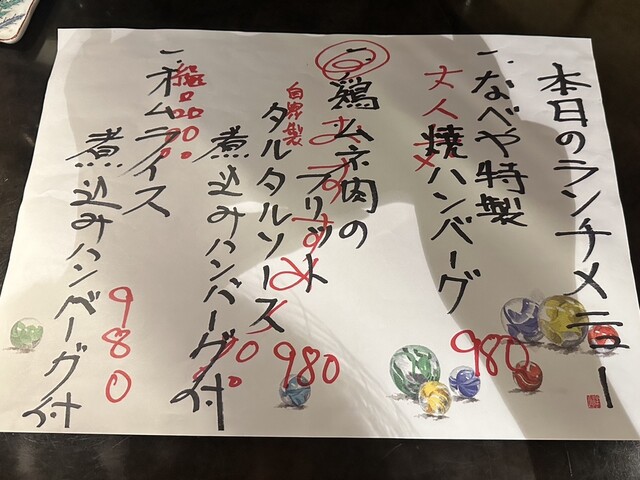 本日のランチメニュー
一、なべや特製
大人焼ハンバーグ
980
一、鶏ムネ肉の
フリット
自家製
タルタルソース
980
煮込みハンバーグ付
一、オムライス
煮込みハンバーグ付
980